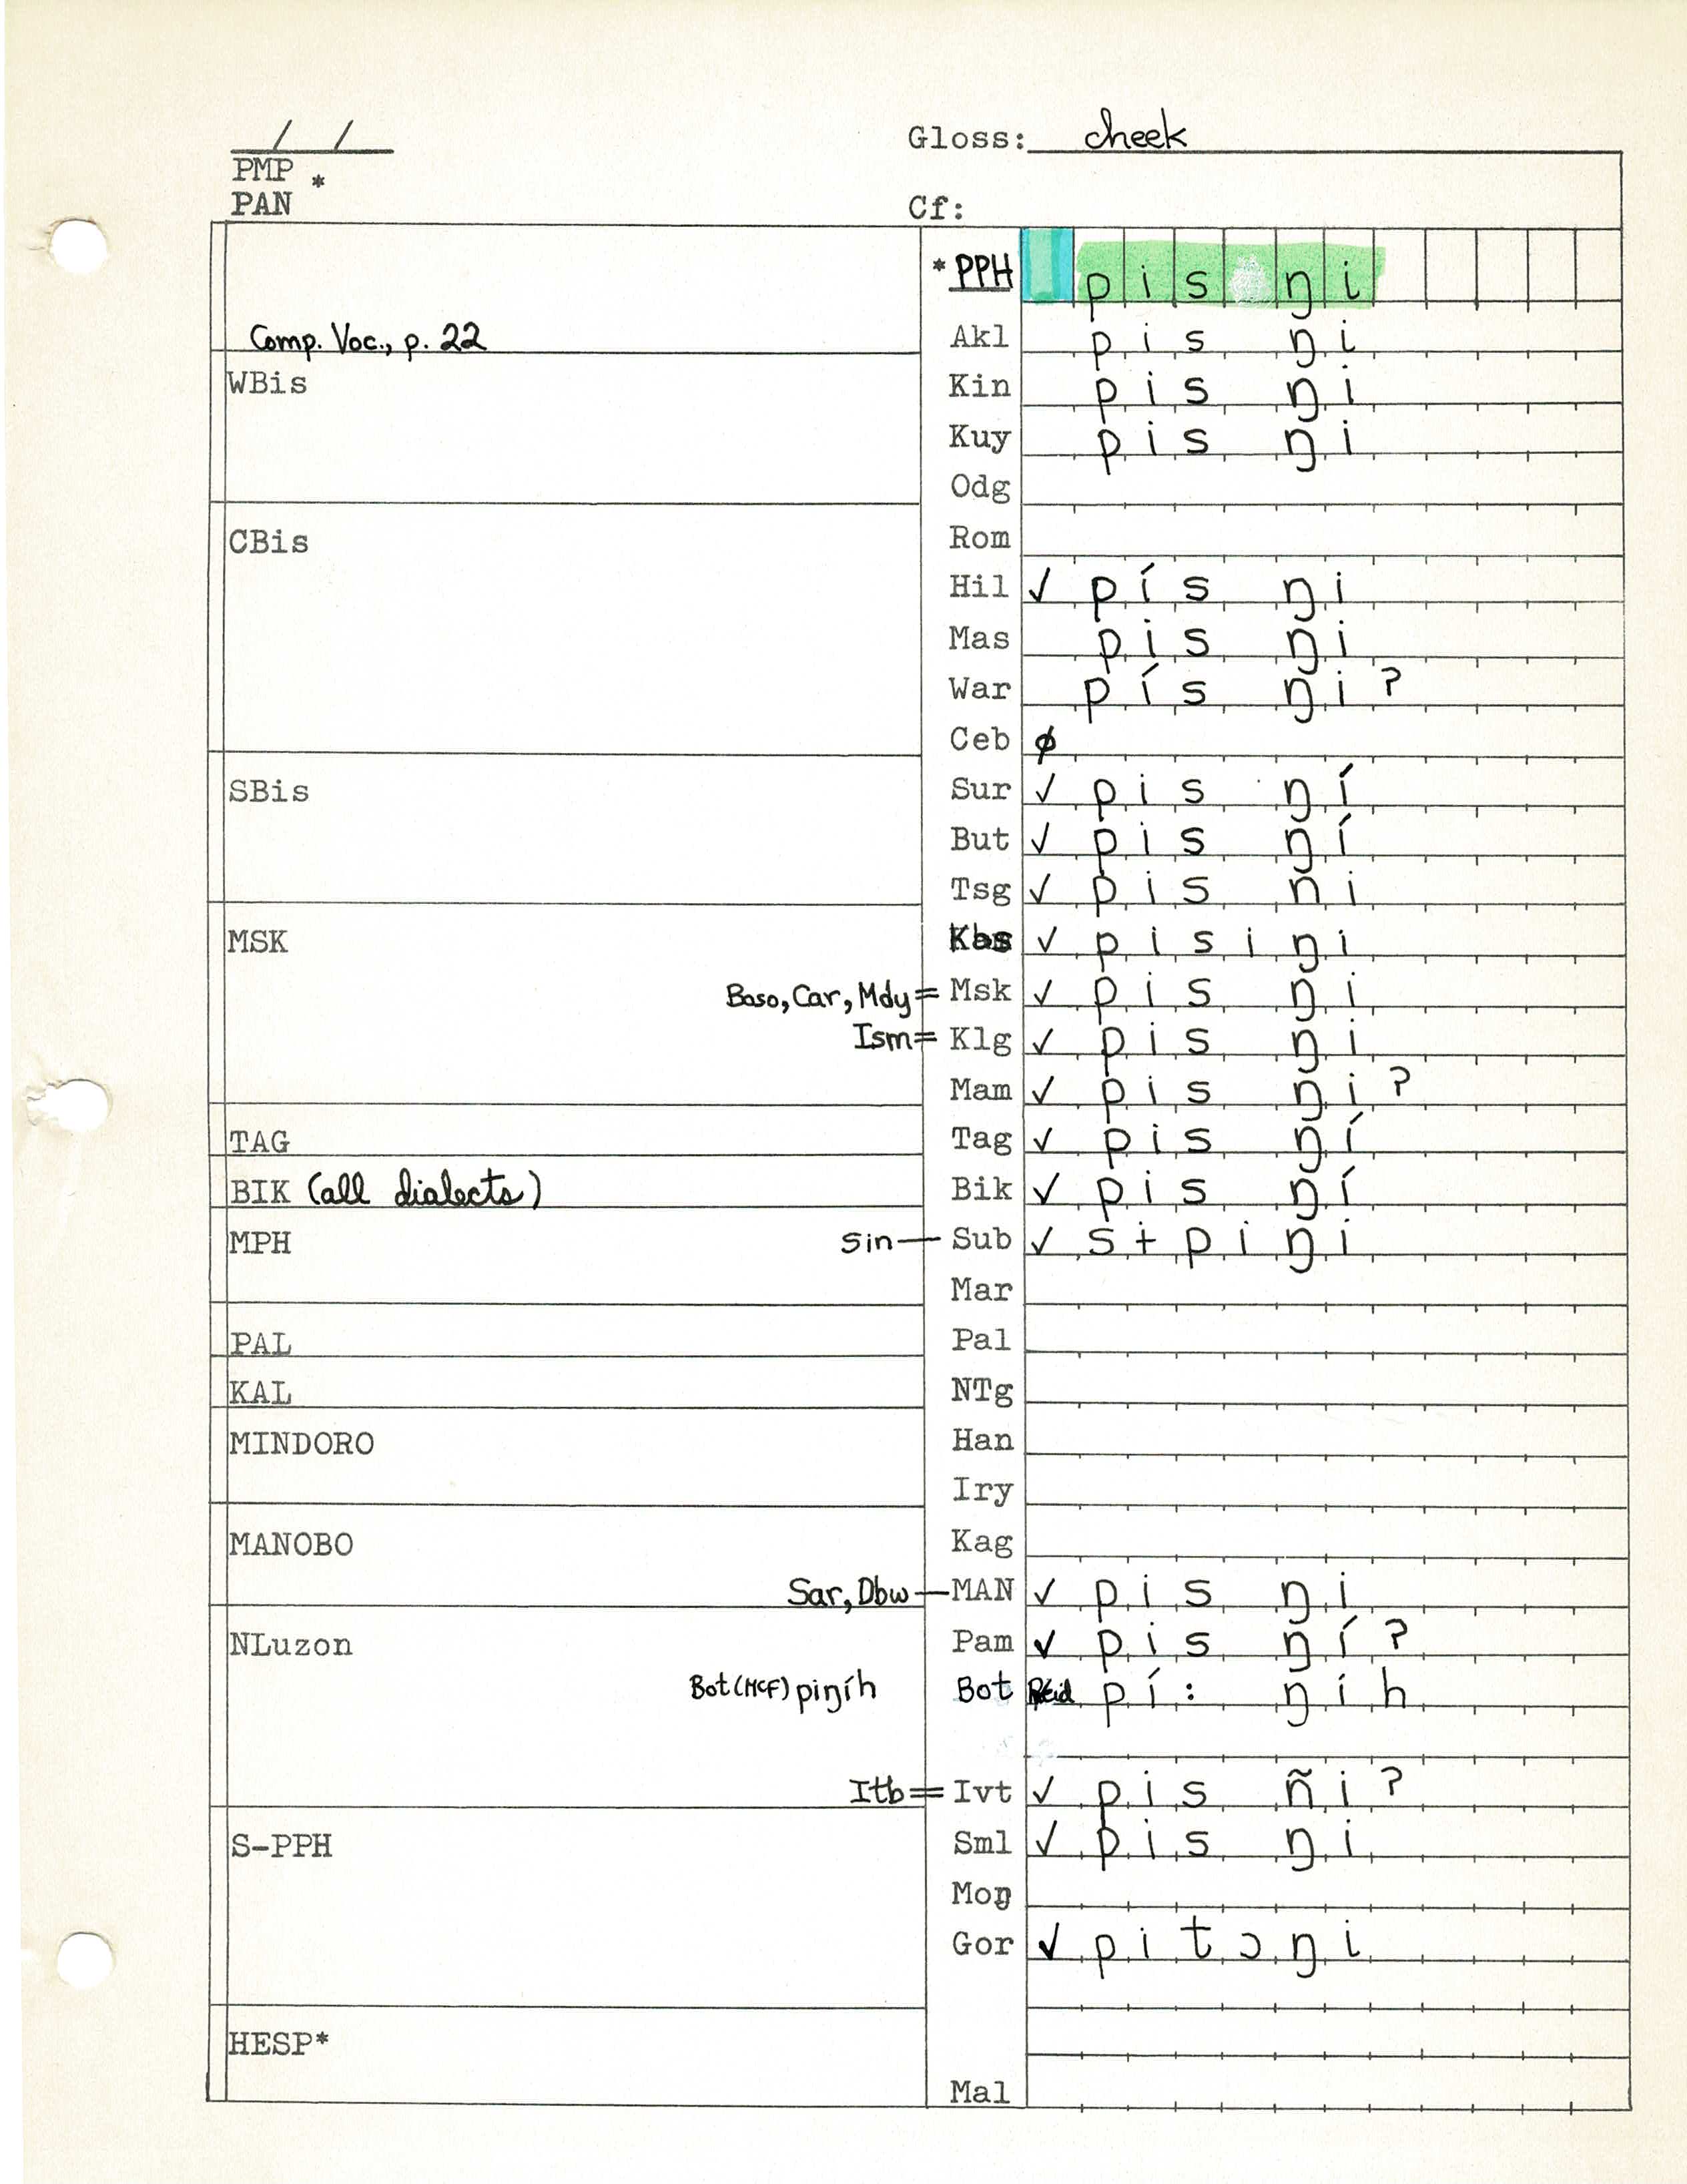 / /
Gloss: cheek
PMP *
PAN
Cf:
* PPH p i s ŋ i
Comp. Voc., p. 22
Akl p i s ŋ i
WBis
Kin p i s ŋ i
Kuy p i s ŋ i
Odg
CBis
Rom
Hil ✓ p í s ŋ i
Mas p i s ŋ i
War p í s ŋ i ʔ
Ceb ø
SBis
Sur ✓ p i s ŋ í
But ✓ p i s ŋ í
Tsg ✓ p i s n i
MSK
✓ p i s i ŋ i
Boso, Car, Mdy = Msk ✓ p i s ŋ i
Ism = Klg ✓ p i s ŋ i
Mam ✓ p i s ŋ i ʔ
TAG
Tag ✓ p i s ŋ í
BIK (all dialects)
Bik ✓ p i s ŋ í
MPH
Sin — Sub ✓ s ɨ p i ŋ i
Mar
PAL
Pal
KAL
NTg
MINDORO
Han
Iry
MANOBO
Kag
Sar, Dbw — MAN ✓ p i s ŋ i
NLuzon
Pam ✓ p i s ŋ í ʔ
Bot (McF) piŋíh
Bot Reid p í : ŋ i h
Itb = Ivt ✓ p i s ñ i ʔ
S-PPH
Sml ✓ p i s ŋ i
Moŋ
Gor ✓ p i t ɔ ŋ i
HESP*
Mal